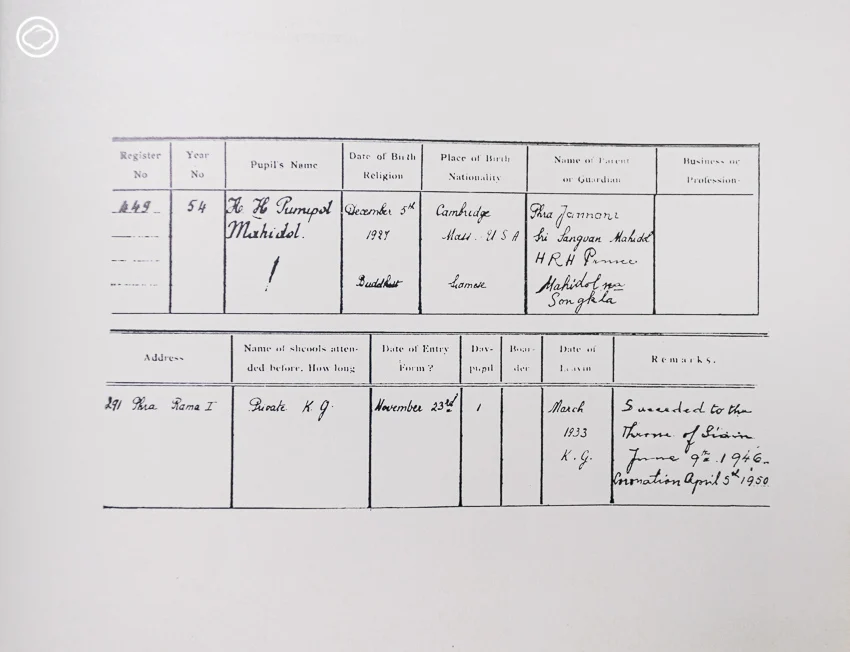 Register No
Year No
Pupil's Name
Date of Birth Religion
Place of Birth Nationality
Name of Parent or Guardian
Business or Profession
449
54
H H Pumipol
Mahidol.
December 5th
1927
Buddhist
Cambridge
Mass. U S A
Siamese
Phra Jannani
Sri Sangvan Mahidol
H R H Prince
Mahidol na
Songkla
Address
Name of shcools atten-
ded before. How long
Date of Entry
Form?
Day-
pupil
Boar-
der
Date of
Leavin
Remarks.
291 Phra Rama I
Private K. G.
November 23rd
1
March
1933
K. G.
Succeded to the
Throne of Siam
June 9th 1946.
Coronation April 5th 1950